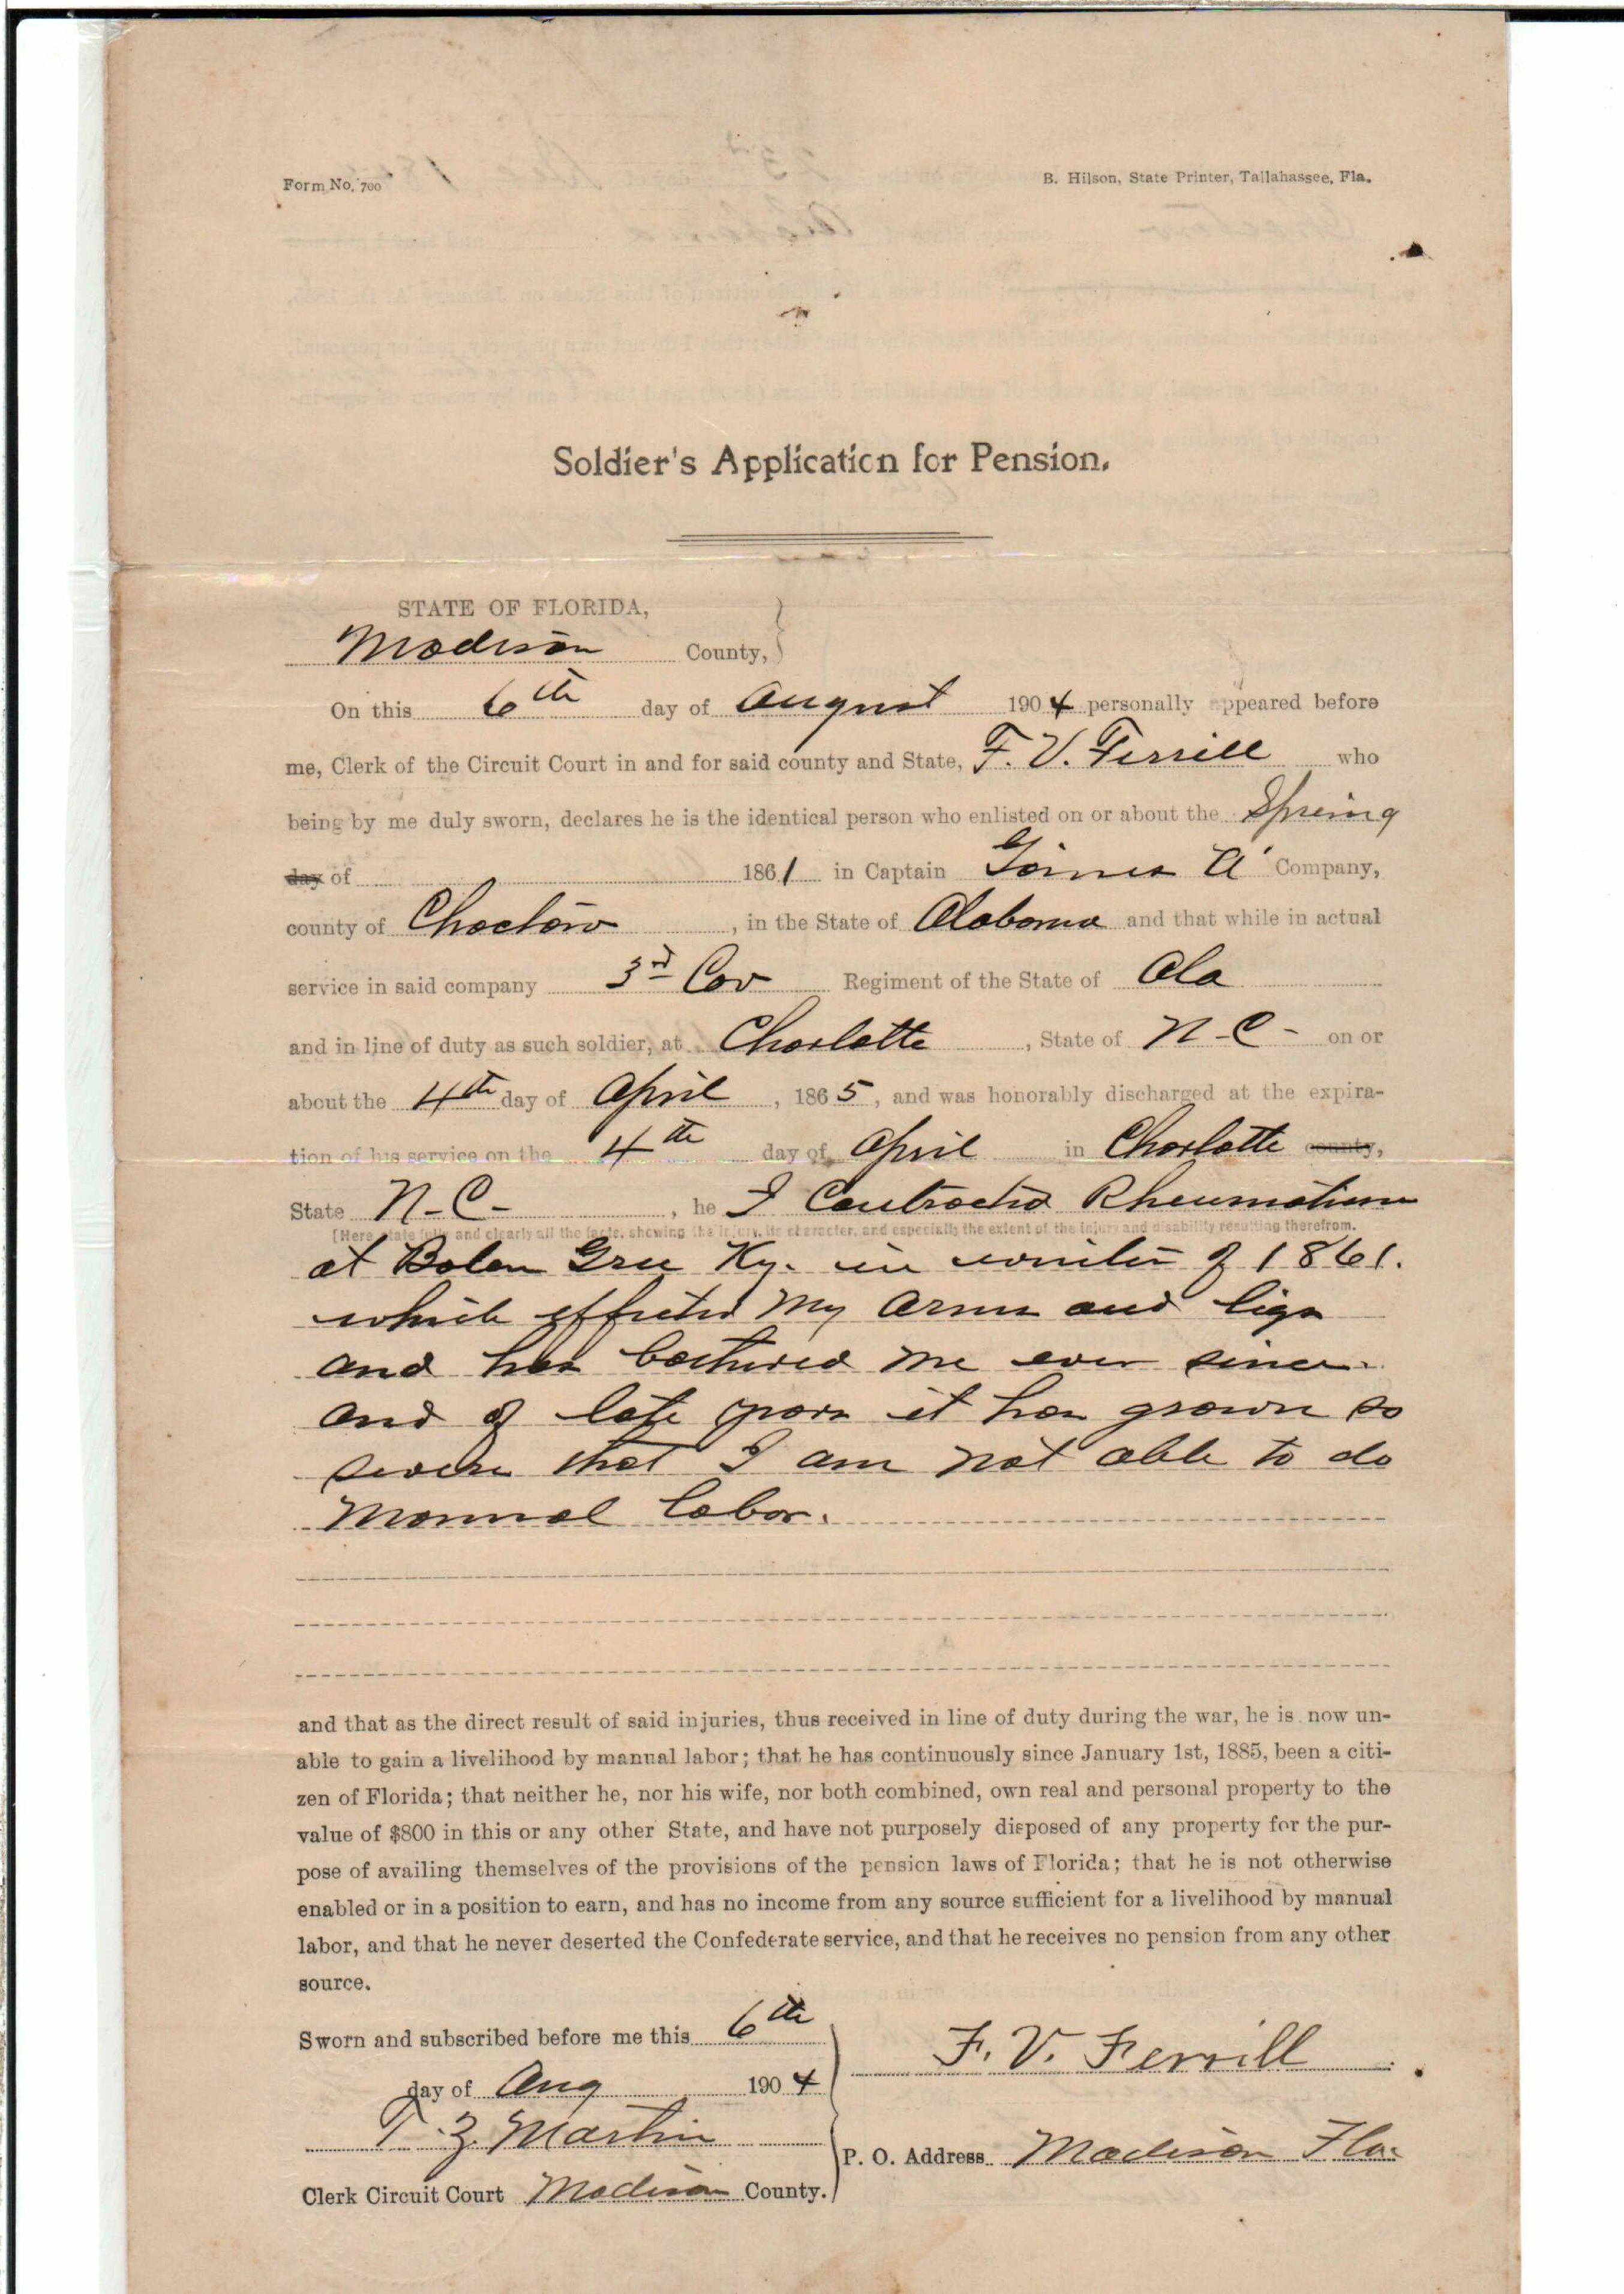 Form No. 700
B. Hilson, State Printer, Tallahassee, Fla.
Soldier's Application for Pension.
STATE OF FLORIDA,
Madison County,
On this 6th day of August 1904 personally appeared before
me, Clerk of the Circuit Court in and for said county and State, F. V. Ferrill who
being by me duly sworn, declares he is the identical person who enlisted on or about the Spring
day of 1861 in Captain A Company,
county of Choctaw, in the State of Alabama and that while in actual
service in said company 3rd Cav Regiment of the State of Ala
and in line of duty as such soldier, at Charlotte, State of N-C- on or
about the 4th day of April, 1865, and was honorably discharged at the expira-
tion of his service on the 4th day of April in Charlotte county,
State N-C-, he I Contracted Rheumatism
[Here state fully and clearly all the facts, showing the injury, its character, and especially the extent of the injury and disability resulting therefrom.
at Bolen Gree Ky. in winter of 1861.
which effected my arms and legs
and has bothered me ever since.
and of late years it has grown so
severe that I am not able to do
manual labor.
and that as the direct result of said injuries, thus received in line of duty during the war, he is now un-
able to gain a livelihood by manual labor; that he has continuously since January 1st, 1885, been a citi-
zen of Florida; that neither he, nor his wife, nor both combined, own real and personal property to the
value of $800 in this or any other State, and have not purposely disposed of any property for the pur-
pose of availing themselves of the provisions of the pension laws of Florida; that he is not otherwise
enabled or in a position to earn, and has no income from any source sufficient for a livelihood by manual
labor, and that he never deserted the Confederate service, and that he receives no pension from any other
source.
Sworn and subscribed before me this 6th
F. V. Ferrill
day of Aug 1904
T. Z. Martin
P. O. Address Madison Fla.
Clerk Circuit Court Madison County.